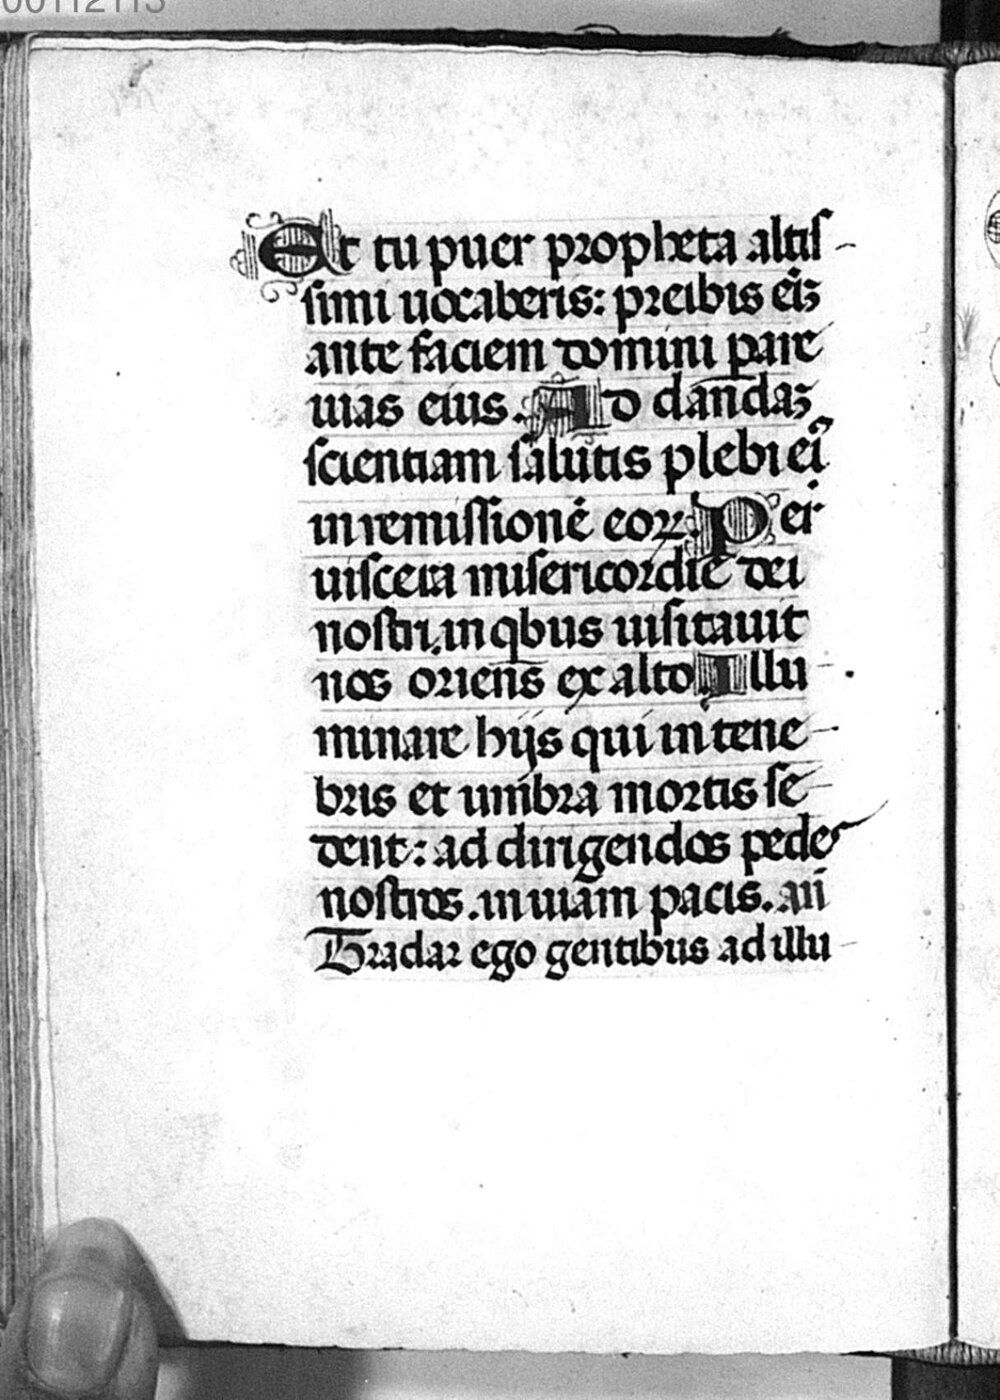 00112113
Et tu puer propheta altis-
simi uocaberis: preibis eī3
ante faciem domini pare
uias eius. Ad dandaʒ
scientiam salutis plebi ei9
in remissionē eoꝝ. Per
uiscera misericordie dei
nostri. in qbus uisitauit
nos oriens ex alto. Illu-
minare hijs qui in tene-
bris et umbra mortis se-
dent: ad dirigendos pedes
nostros. in uiam pacis. an̄
Tradar ego gentibus ad illu-